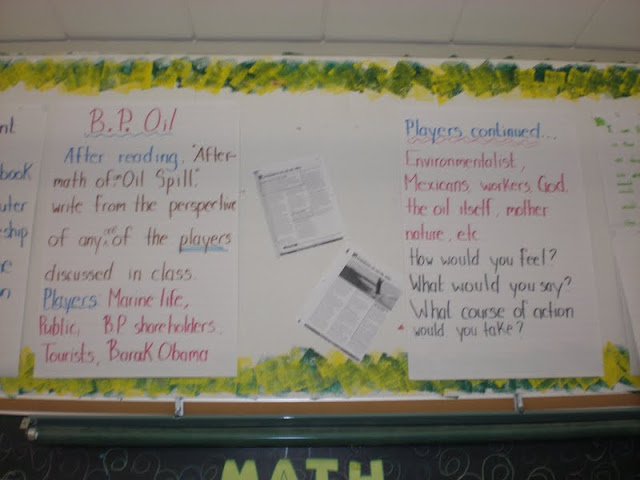 nt
book
uter
eship
B.P. Oil
After reading, "After-
math of Oil Spill."
write from the perspective
of any one of the players
discussed in class.
Players: Marine life,
Public, BP shareholders,
Tourists, Barak Obama
Players continued...
Environmentalist,
Mexicans, workers, God,
the oil itself, mother
nature, etc
How would you feel?
What would you say?
What course of action
would you take?
MATH